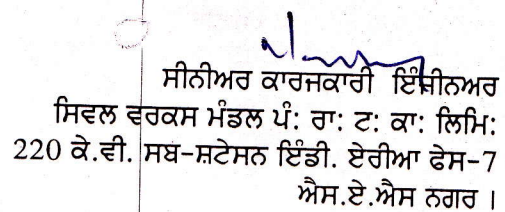 ਸੀਨੀਅਰ ਕਾਰਜਕਾਰੀ ਇੰਜੀਨਅਰ
ਸਿਵਲ ਵਰਕਸ ਮੰਡਲ ਪੰ: ਰਾ: ਟ: ਕਾ: ਲਿਮਿ:
220 ਕੇ.ਵੀ. ਸਬ-ਸ਼ਟੇਸਨ ਇੰਡੀ. ਏਰੀਆ ਫੇਸ-7
ਐਸ.ਏ.ਐਸ ਨਗਰ ।